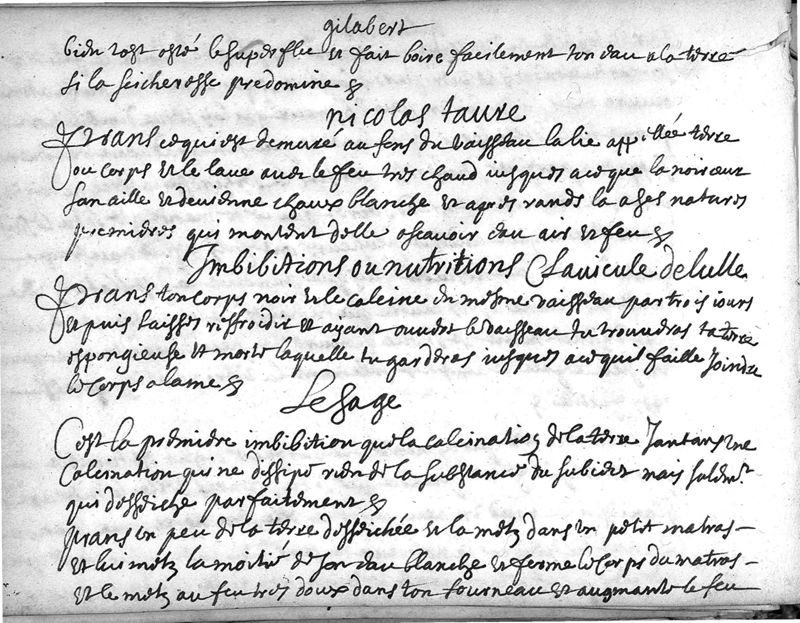 gilabert
bien tost osté le superflu et fait boire facilement ton eau a la terre
si la seicheresse predomine
nicolas taure
prans ce qui est demuré au fons du vaisseau la lie appellée terre
ou corps et le laue auec le feu tres chaud iusques a ce que la noirceur
san aille et deuienne chaux blanche et apres rands la a ses natures
premieres qui montent delle ascauoir eau air et feu
Imbibitions ou nutritions Clauicule de lulle
prans ton corps noir et le calcine en mesme vaisseau par trois iours
et puis laisses reffroidir et ayant ouuert le vaisseau tu trouueras ta terre
espongieuse et morte laquelle tu garderas iusques a ce quil faille Joindre
le corps a lame
Le sage
Cest la premiere imbibition que la calcination de la terre Jantans une
calcination qui ne dissipe rien de la substance du subiect mais seulemt
qui desseiche parfaitement
prans un peu de la terre desseichée et la metz dans un petit matras
et lui metz la moitié de son eau blanche et ferme le corps du matras
et le metz au feu tres doux dans ton fourneau et augmante le feu